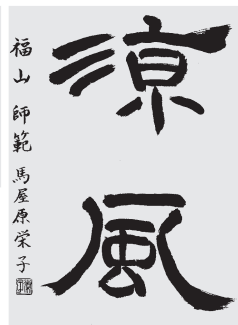 涼風
福山 師範 馬屋原栄子